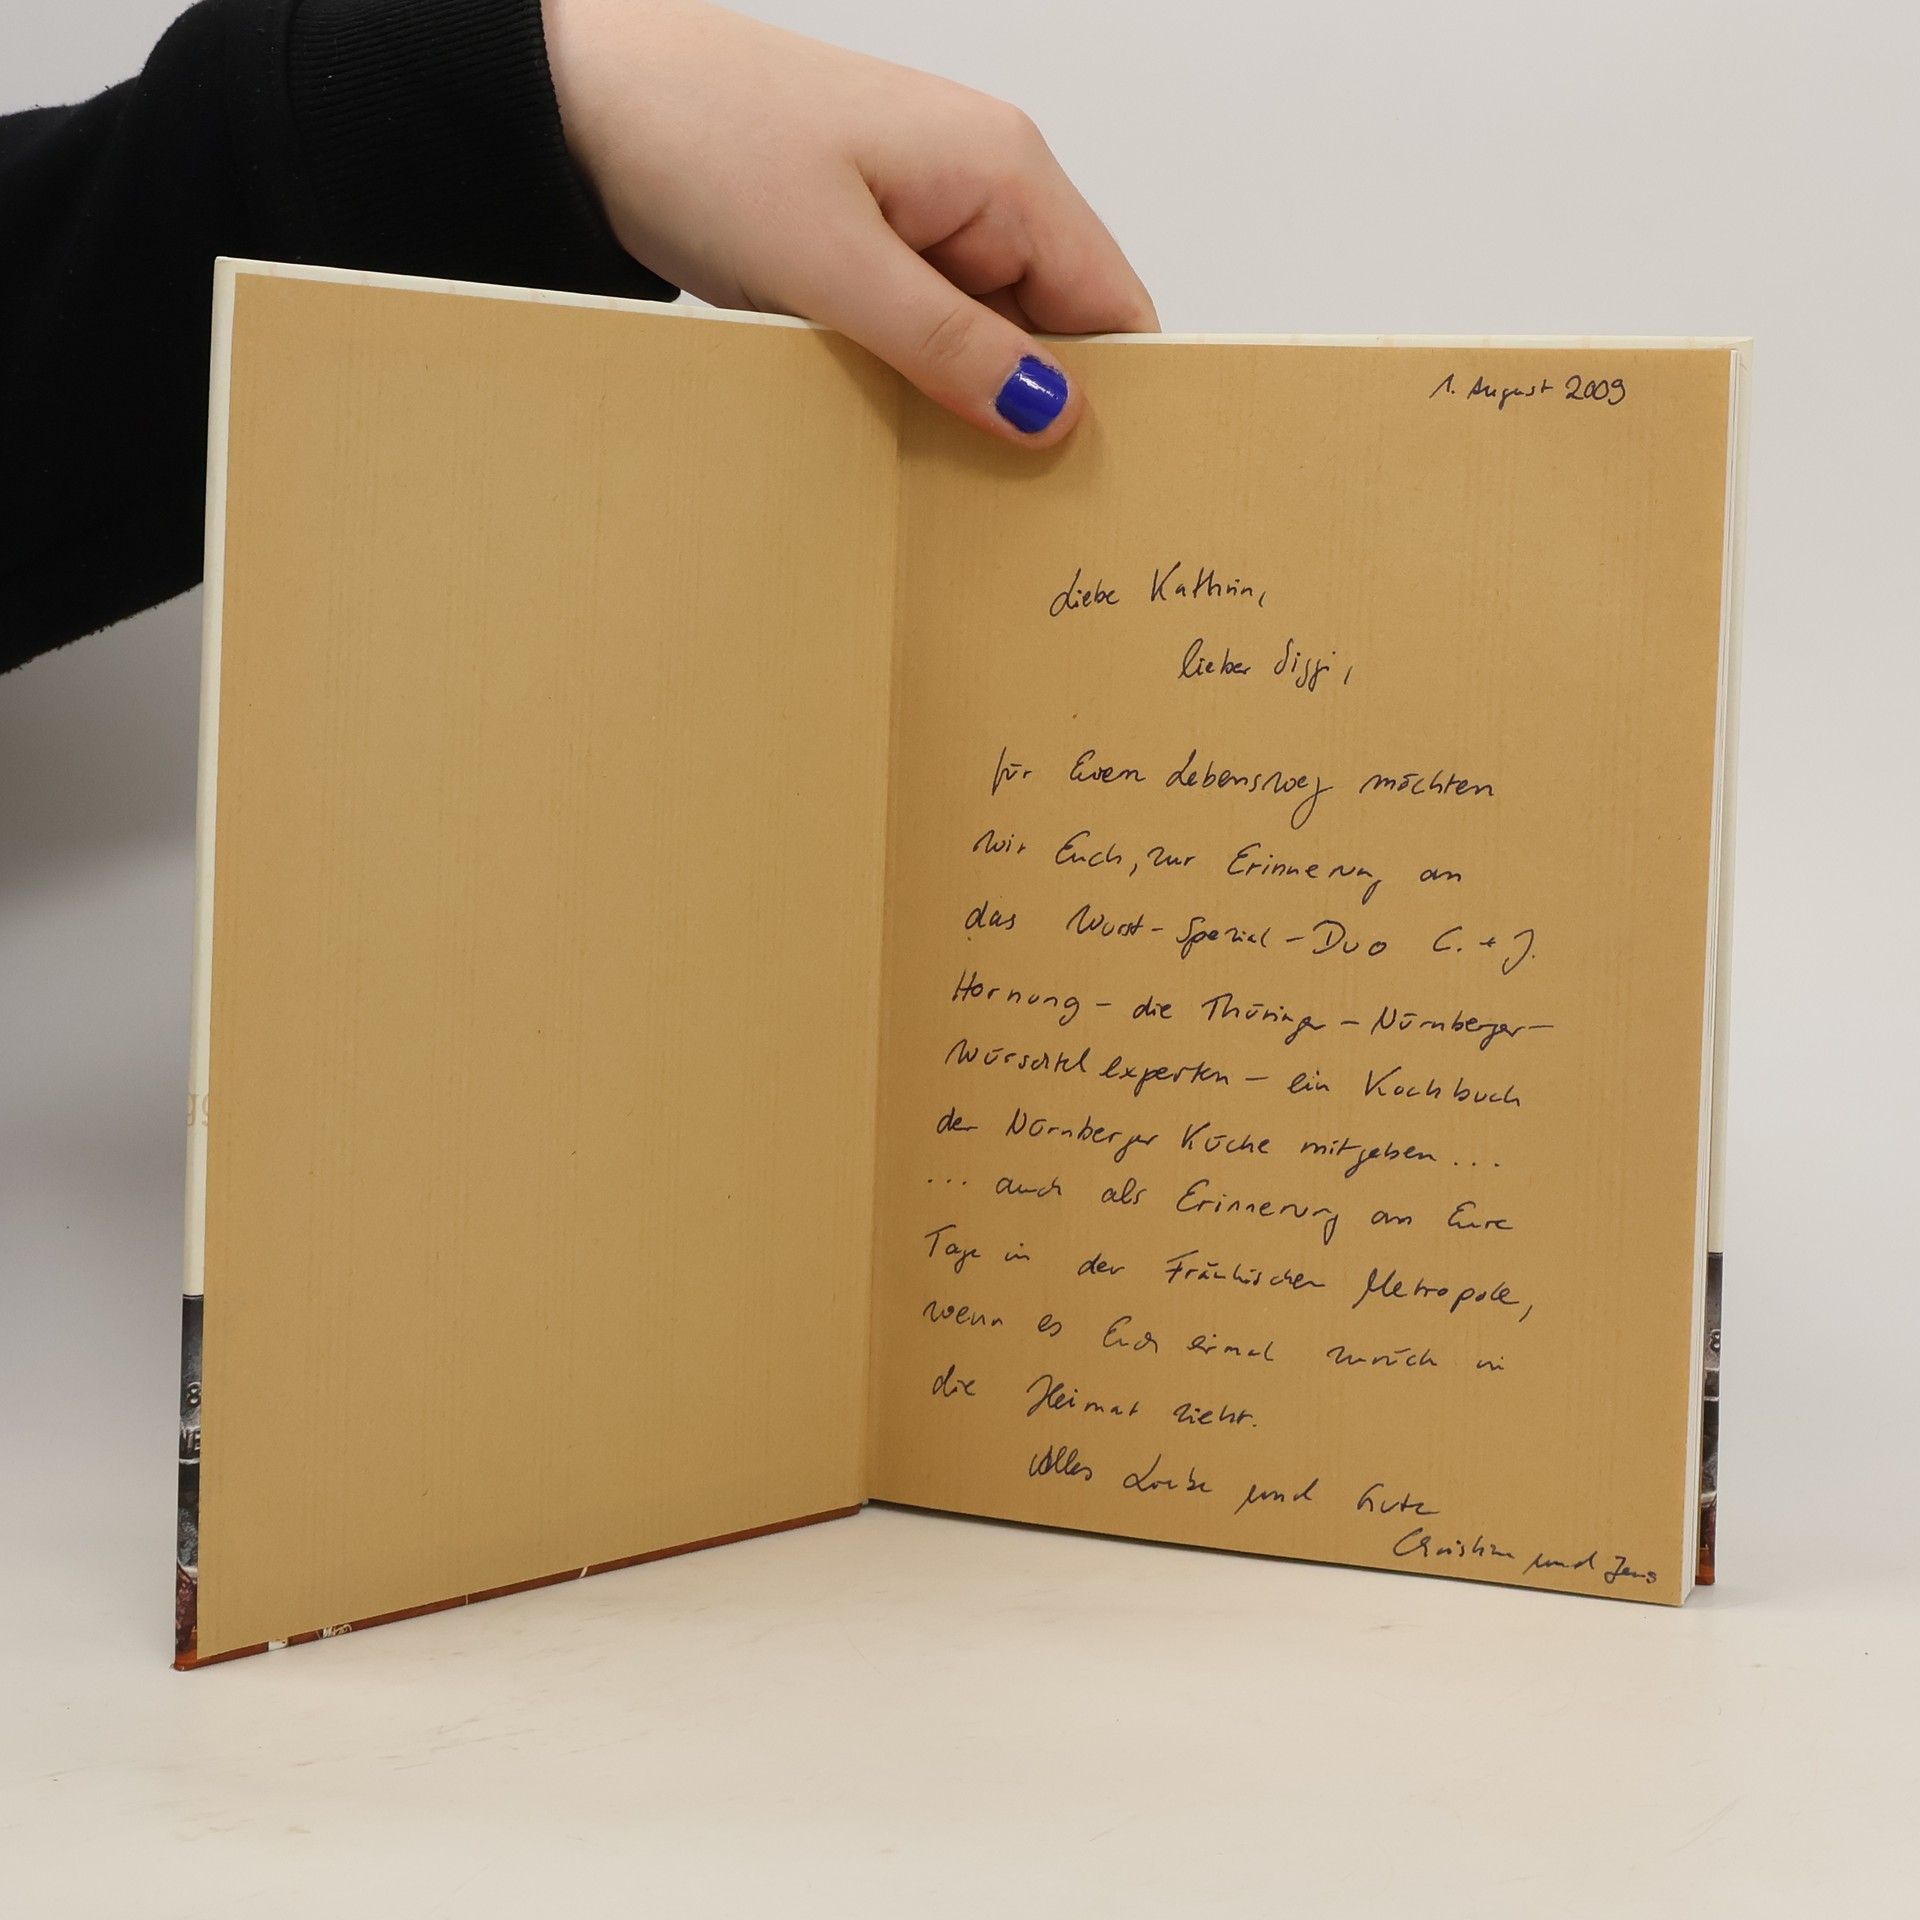 1. August 2009
Liebe Kathrin,
lieber Siggi,
für Euern Lebensweg möchten
wir Euch, zur Erinnerung an
das Wurst-Spezial-Duo C. + J.
Hornung - die Thüringer-Nürnberger-
Würschtelexperten - ein Kochbuch
der Nürnberger Küche mitgeben...
... auch als Erinnerung an Eure
Tage in der Fränkischen Metropole,
wenn es Euch einmal zurück in
die Heimat zieht.
Alles Liebe und Gute
Christine und Jens
8
8